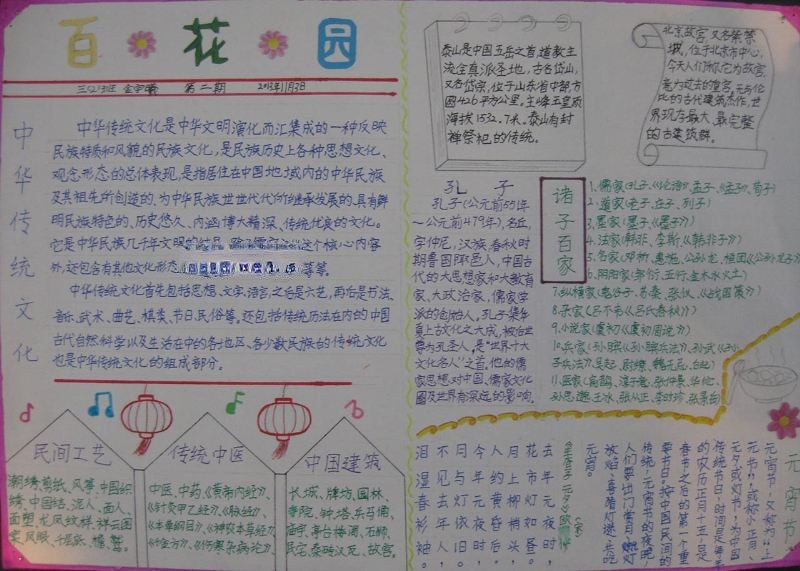 百花园
三(2)班 第二期 2013年11月3日
中华传统文化
中华传统文化是中华文明演化而汇集成的一种反映
民族特质和风貌的民族文化,是民族历史上各种思想文化、
观念形态的总体表现,是指居住在中国地域内的中华民族
及其祖先所创造的,为中华民族世世代代所继承发展的,具有鲜
明民族特色的,历史悠久、内涵博大精深、传统优良的文化。
它是中华民族几千年文明 这个核心内容
外,还包含有其他文化形态 等等。
中华传统文化首先包括思想、文字、语言,之后是六艺,再后是书法、
音乐、武术、曲艺、棋类、节日、民俗等。还包括传统历法在内的中国
古代自然科学以及生活在中的各地区、各少数民族的传统文化
也是中华传统文化的组成部分。
民间工艺
潮绣,剪纸、风筝、中国织
绣,中国结,泥人、面人、
面塑,龙凤纹样,祥云图
案,凤眼、千层底、檐、鹫。
传统中医
中医、中药、《黄帝内经》、
《针灸甲乙经》、《脉经》、
《本草纲目》、《神农本草经》、
《千金方》、《伤寒杂病论》、
中国建筑
长城、牌坊、园林、
寺院、钟、塔、兵马俑、
庙宇、亭台楼阁、石狮、
民宅、秦砖汉瓦、故宫。
泰山是中国五岳之首,道教主
流全真派圣地,古名岱山,
又名岱宗,位于山东省中部,方
圆426平方公里。主峰玉皇顶
海拔1532.7米。泰山有封
禅祭祀的传统。
北京故宫,又名紫禁
城,位于北京市中心,
今天人们称它为故宫,
意为过去的皇宫,无与伦
比的古代建筑杰作,世
界现存最大、最完整
的古建筑群。
孔子
孔子(公元前551年
—公元前479年),名丘,
字仲尼,汉族,春秋时
期鲁国陬邑人,中国古
代的大思想家和大教育
家、大政治家,儒家学
派的创始人。孔子集华
夏上古文化之大成,被后世
尊为孔圣人,是“世界十大
文化名人”之首。他的儒
家思想对中国、儒家文化
圈及世界有深远的影响。
诸子百家
1.儒家(孔子、《论语》,孟子、《孟子》,荀子)
2.道家(老子、庄子、列子)
3.墨家(墨子、《墨子》)
4.法家(韩非、李斯、《韩非子》)
5.名家(邓析、惠施、公孙龙、桓团、《公孙龙子》)
6.阴阳家(邹衍、五行、金木水火土)
7.纵横家(鬼谷子、苏秦、张仪、《战国策》)
8.杂家(吕不韦、《吕氏春秋》)
9.小说家(虞初、《虞初周说》)
10.兵家(孙膑、《孙膑兵法》、孙武、《孙
子兵法》、吴起、尉缭、魏无忌、白起)
11.医家(扁鹊、淳于意、张仲景、华佗、
孙思邈、王冰、张从正、李时珍、张景岳)
元宵节
元宵节,又称为“上
元节”,或称小正月、
元夕或灯节,为中国
传统节日,时间是每年
的农历正月十五,是
春节之后的第一个重
要节日。按中国民间的
传统,元宵节的夜晚,
人们要出门赏月、燃灯
放焰、喜猜灯谜、共吃
元宵。
《生查子 元夕》欧阳修(宋)
去年元夜时,
花市灯如昼。
月上柳梢头,
人约黄昏后。
今年元夜时,
月与灯依旧。
不见去年人,
泪湿春衫袖。